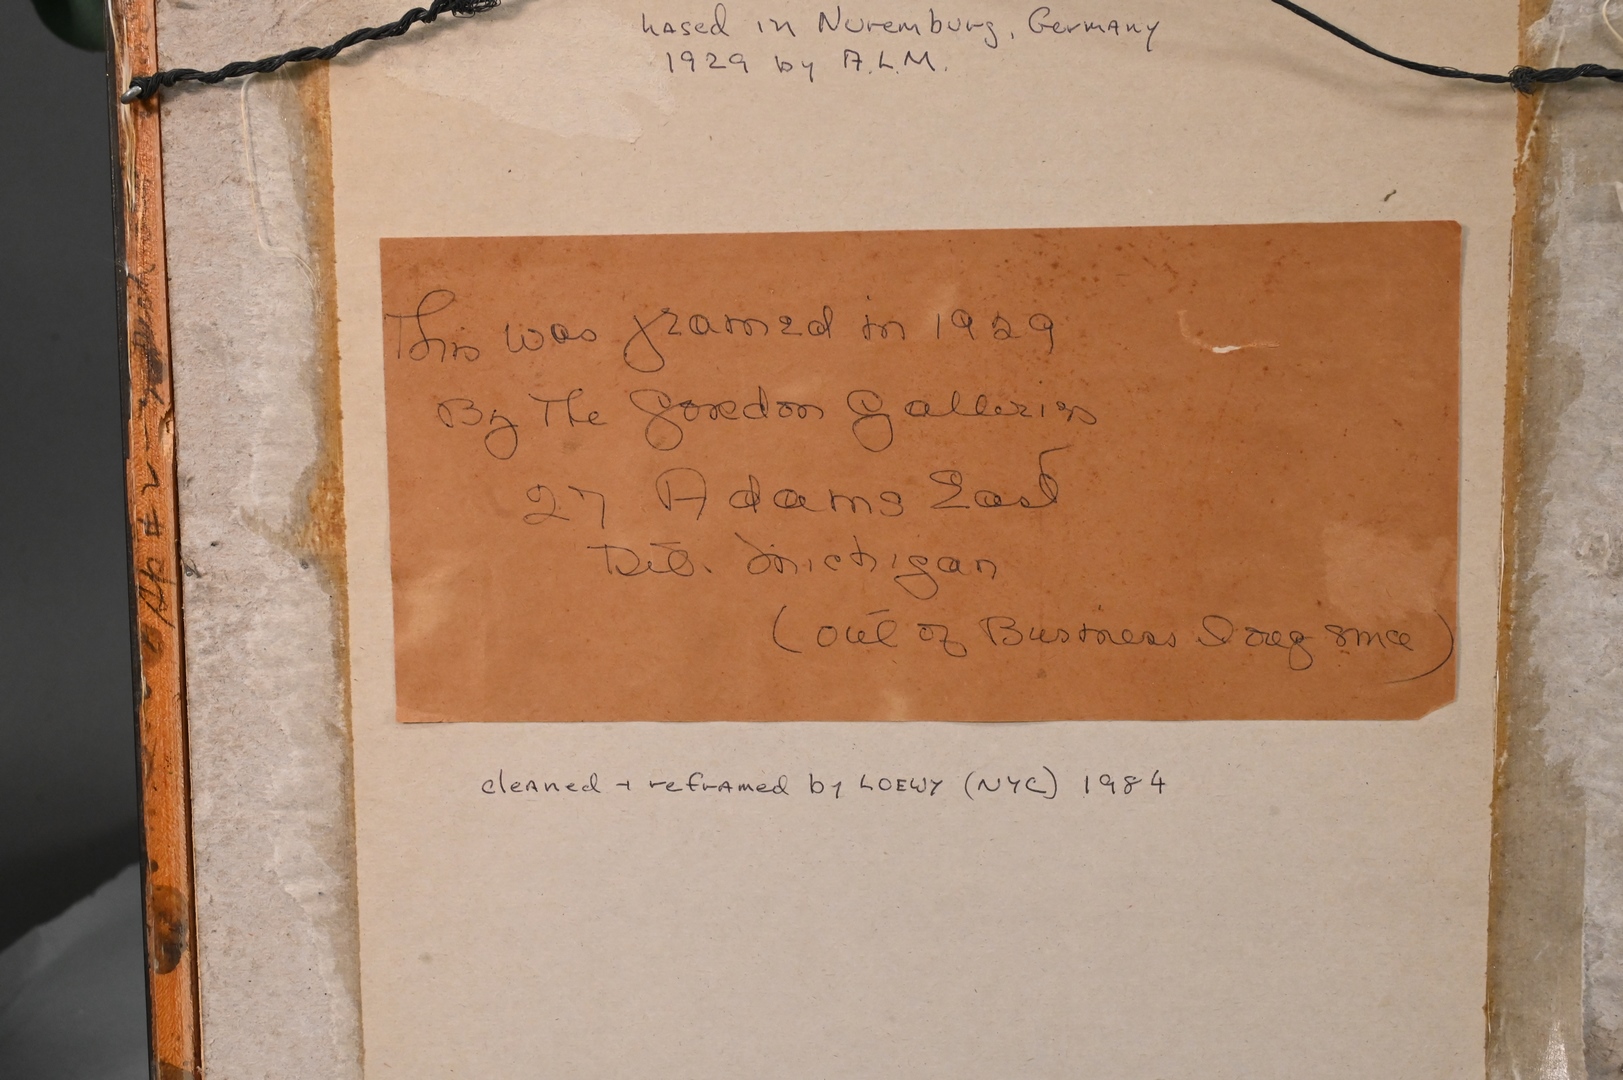 hased in Nuremburg, Germany
1929 by A.L.M.
This was framed in 1929
By The Gordon Galleries
27 Adams East
Det. Michigan
(out of Business Long since)
cleaned + reframed by LOEWY (NYC) 1984